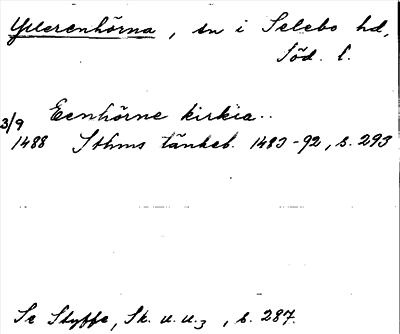 Ytterenhörna, sn i Selebo hd,
Söd. l.
3/9 Eenhörne kirkia..
1488 Sthms tänkeb. 1483-92, s. 293
Se Styffe, Sk. u. u.3, s. 287.